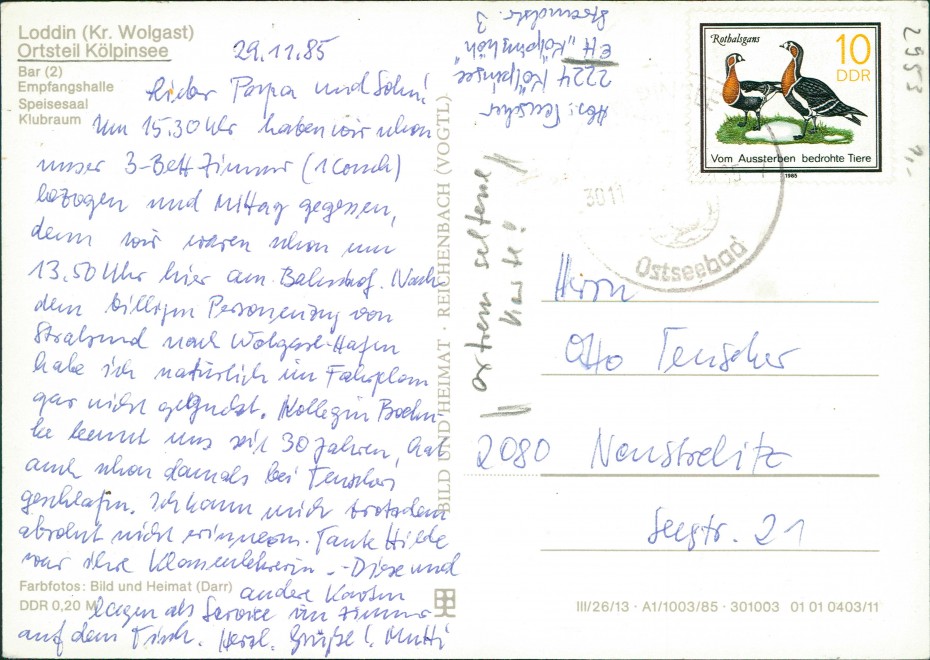 Loddin (Kr. Wolgast)
Ortsteil Kölpinsee
Bar (2)
Empfangshalle
Speisesaal
Klubraum
29.11.85
Lieber Papa und Sohn!
Um 15.30 Uhr haben wir schon
unser 3-Bett Zimmer (1 Couch)
bezogen und Mittag gegessen,
denn wir waren schon um
13.50 Uhr hier am Bahnhof. Nach
dem billigen Personenzug von
Stralsund nach Wolgast-Hafen
habe ich natürlich im Fahrplan
gar nicht geguckt. Kollegin
kennt uns seit 30 Jahren, hat
auch schon damals bei Teuschers
geschlafen. Ich kann mich trotzdem
absolut nicht erinnern. Tante Hilde
war ihre Klassenlehrerin. - Diese und
andere Karten
lagen als Service im Zimmer
auf dem Tisch. Herzl. Grüße! Mutti
Farbfotos: Bild und Heimat (Darr)
DDR 0,20 M
BILD UND HEIMAT · REICHENBACH (VOGTL)
Abs.: Teuscher
2224 Kölpinsee
EH „Kölpinshöh“
Strandstr.
3
extrem seltene
Karte!
Rothalsgans
10
DDR
Vom Aussterben bedrohte Tiere
1985
3011
Ostseebad
2953
1,-
Herrn
Otto Teuscher
2080 Neustrelitz
Seestr. 21
III/26/13 · A1/1003/85 · 301003 01 01 0403/11